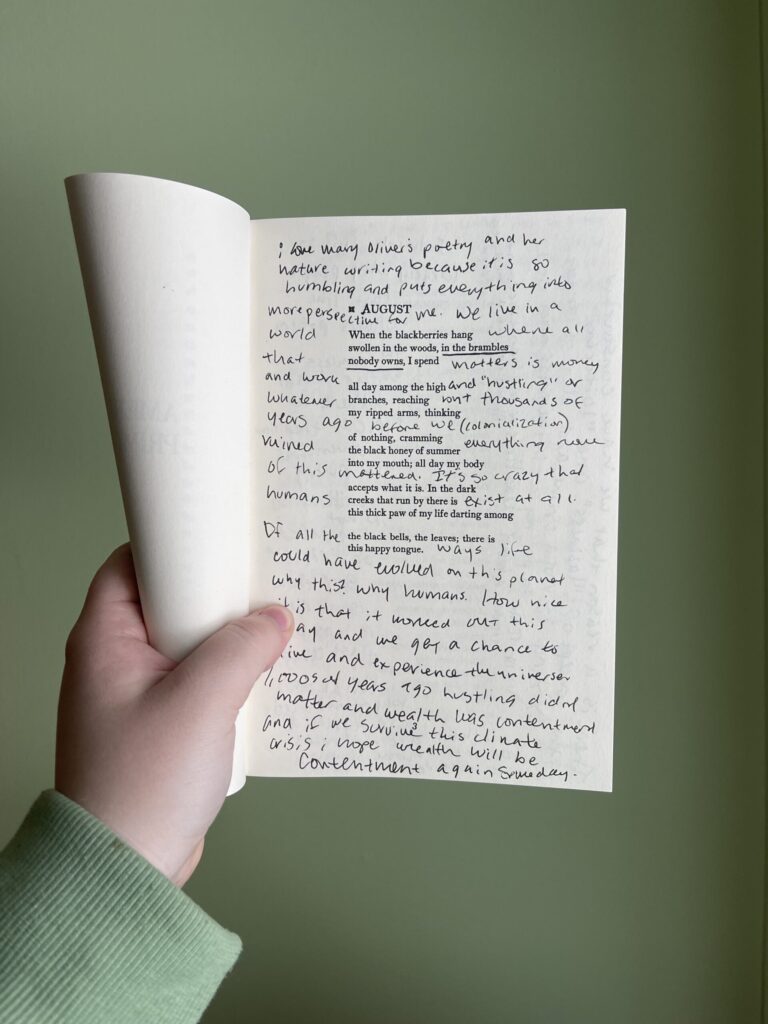 i love mary Oliver's poetry and her
nature writing because it is so
humbling and puts everything into
AUGUST
more perspective for me. We live in a
world When the blackberries hang where all
swollen in the woods, in the brambles
that nobody owns, I spend matters is money
and work all day among the high and "hustling" or
whatever branches, reaching but thousands of
my ripped arms, thinking
years ago before we (colonialization)
of nothing, cramming
ruined the black honey of summer everything none
into my mouth; all day my body
of this mattered. It's so crazy that
accepts what it is. In the dark
humans creeks that run by there is exist at all.
this thick paw of my life darting among
Of all the the black bells, the leaves; there is
this happy tongue. ways life
could have evolved on this planet
why this? why humans. How nice
it is that it worked out this
way and we get a chance to
live and experience the universe.
1,000s of years ago hustling didnt
matter and wealth was contentment
and if we survive this climate
crisis i hope wealth will be
Contentment again someday.